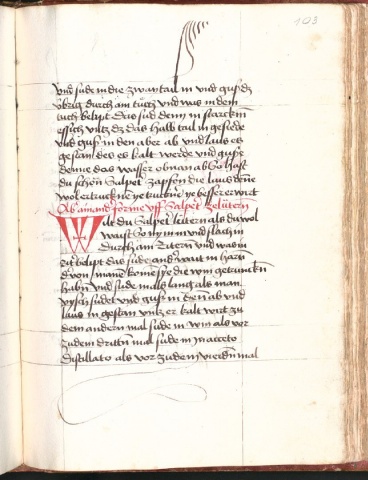 103
vnd sude in die zway tail in vnd gus dz
vbrig durch ain tuch vnd was in dem
tuch belipt das sud denn in starckem
essich vntz dz das halb tail in gesiede
vnd gus in den aber ab vnd laus es
gestan des es kalt werde vnd guss
denne das wasser obnan ab So hast
du schen Salpeter zapfen die laus denne
wol ertrucknen ye truckner ye besser er wirt
Ab ain and forme vff Salpeter zelutern
Wilt du Salpeter lutern als du wol
waist So nym in vnd slach in
durch ain und was in
belipt das sude anderwart in harn
von man die win getruncken
habn vnd sude in als lang als man
visch sudet vnd gus in denn ab vnd
laus in gestan vntz er kalt wirt zu
dem andern mal sude in win als vor
zu dem dritten mal sude in aceto
distillato als vor zu dem vierden mal